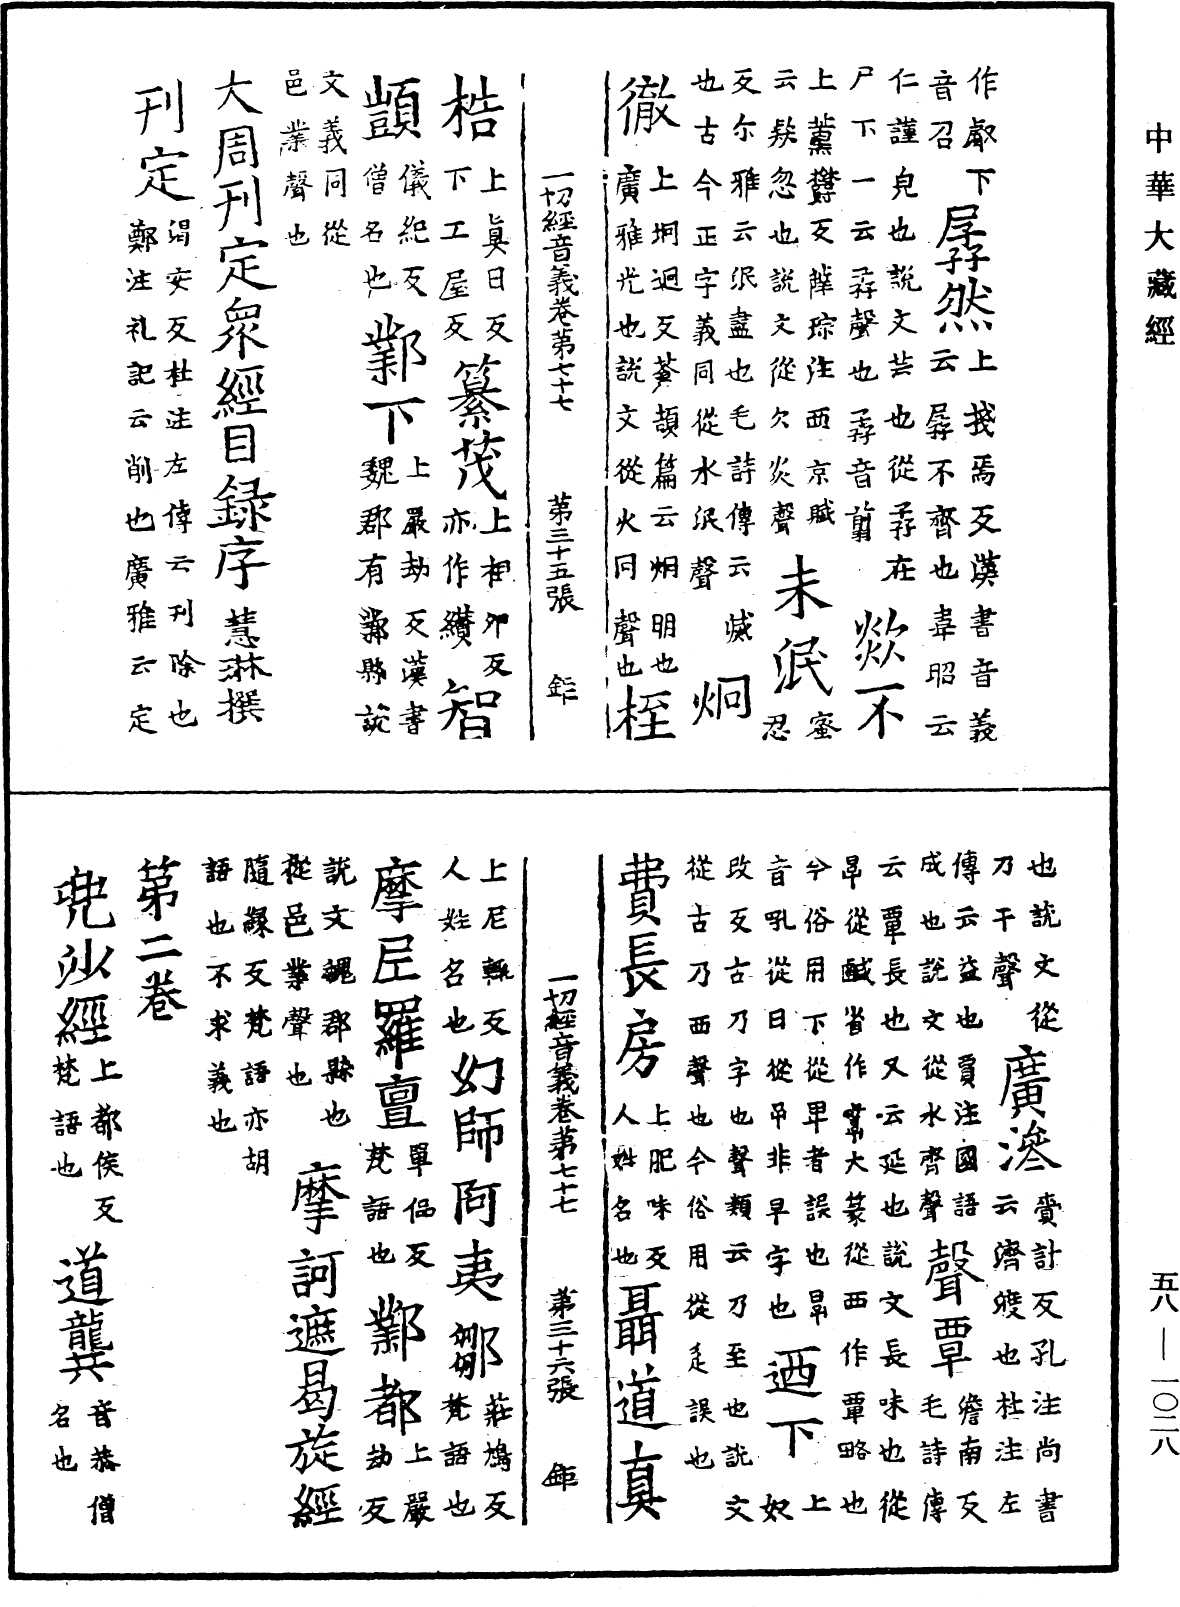 中華大藏經
作㕡下孱然上棧焉反漢書音義
音召云孱不齊也韋昭云
仁謹皃也說文笮也從孨在
尸下一云孨聲也孨音翦欻不
上薰欝反薛琮注西京賦
云欻忽也說文從欠炎聲未泯蜜忍
反尒雅云泯盡也毛詩傳云滅
也古今正字義同從水泯聲炯
徹上坰迥反蒼頡篇云炯明也
廣雅光也說文從火冋聲也桎
一切經音義卷第七十七 第三十五張 鉅
梏上真日反下工屋反纂茂上祖夘反亦作纘智
顗儀紀反僧名也鄴下上嚴劫反漢書魏郡有鄴縣說
文義同從邑業聲也
大周刊定衆經目録序 慧琳撰
刊定渴安反杜注左傳云刊除也
鄭注礼記云削也廣雅云定
也說文從刀干聲廣濟賫計反孔注尚書
傳云益也賈注國語云濟渡也杜注左
成也說文從水齊聲聲覃譫南反毛詩傳
云覃長也又云延也說文長味也從
㫗從鹹省作𪉷大篆從西作覃略也
兮俗用下從早者誤也㫗上
音吼從日從㫗非早字也迺下奴
改反古乃字也聲類云乃至也說文
從古乃西聲也今俗用從辵誤也
費長房上肥味反人姓名也聶道真
一切經音義卷第七十七 第三十六張 鉅
上尼輒反人姓名也幻師阿夷鄒莊鳩反梵語也
摩𡰱羅亶單侃反梵語也鄴都上嚴劫反
說文魏郡縣也從邑業聲也摩訶遮曷旋經
隨緣反梵語亦胡
語也不求義也
第二卷
兜沙經上都侯反梵語也道龔音恭僧名也
五八—一〇二八